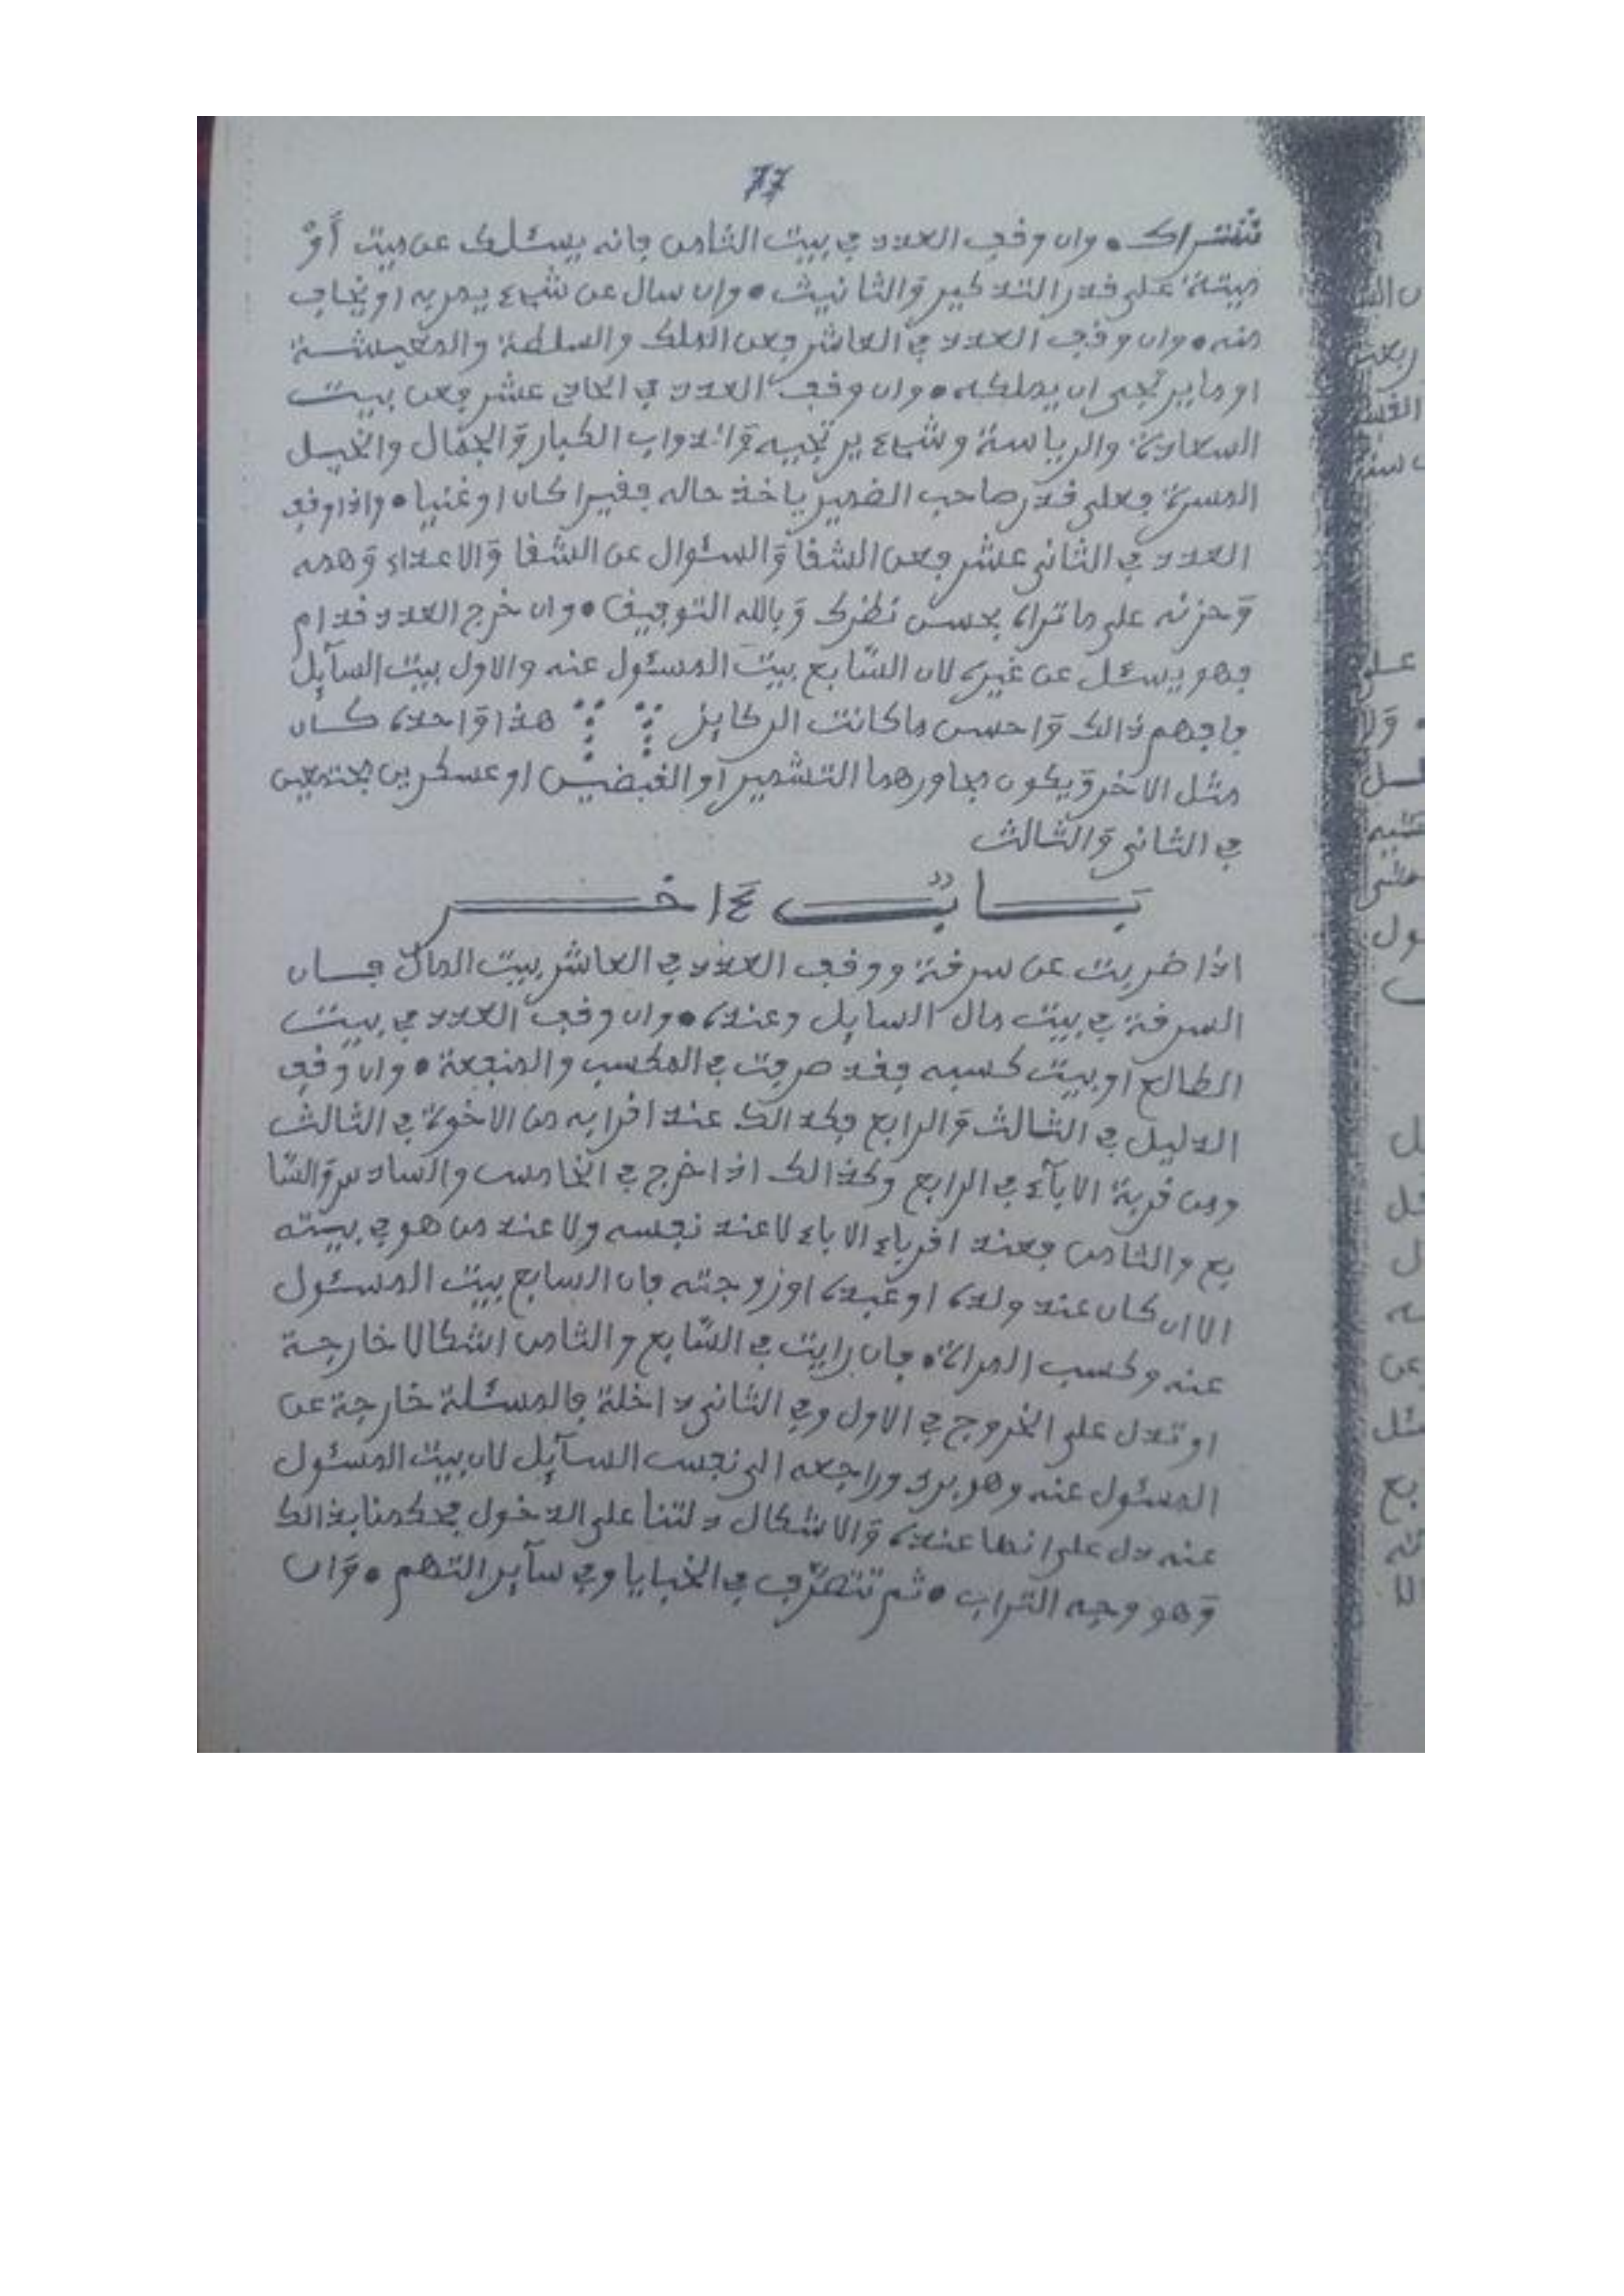 77
تشتراك • وان وقف العدد في بيت الثامن فانه يسئلك عن ميت أو
ميتة على قدر التذكير والثانيث • وان سال عن شيء يهربه او يخاف
منه • وان وقف العدد في العاشر فعن الملك والسلطة والمعيشة
او ما يرتجى ان يملكه • وان وقف العدد في الحادي عشر فعن بيت
السعادة والرياسة وشيء يرتجيه والدواب الكبار والجمال والخيل
المسرة فعلى قدر صاحب الضمير ياخذ حاله فقيرا كان او غنيا • واذا وقف
العدد في الثاني عشر فعن الشقا والسئوال عن الشقا والاعداء وهمه
وحزنه على ما تراه بحسن نظرك وبالله التوفيق • وان خرج العدد قدام
فهو يسئل عن غيره لان السابع بيت المسئول عنه والاول بيت السآيل
فافهم ذالك واحسن ماكانت الركايز هذا واحدة كان
مثل الاخر ويكون مجاورهما التشمير او القبضين او عسكرين مجتمعين
في الثاني والثالث
بَابٌ ءاخر
اذا ضربت عن سرقة ووقف العدد في العاشر بيت المال فان
السرقة في بيت مال السايل وعنده • وان وقف العدد في بيت
الطالع او بيت كسبه فقد صرفت في المكسب والمنفعة • وان وقف
الدليل في الثالث والرابع فكذالك عند اقرابه من الاخوة في الثالث
ومن قربة الابآء في الرابع وكذالك اذا خرج في الخامس والسادس والسا
بع والثامن فعند اقرباء الاباء لا عند نفسه ولا عند من هو في بيته
الا ان كان عند ولده او عبده او زوجته فان السابع بيت المسئول
عنه وكسب المراة • فان رايت في السابع والثامن اشكالا خارجة
او تدل على الخروج في الاول وفي الثاني داخلة فالمسئلة خارجة عن
المسئول عنه وهو برئ وراجعه الى نفس السآيل لان بيت المسئول
عنه دل على انها عنده والاشكال دلتنا على الدخول فحكمنا بذالك
وهو وجه التراب • ثم تتصرف في الخبايا وفي سآير التهم • وان